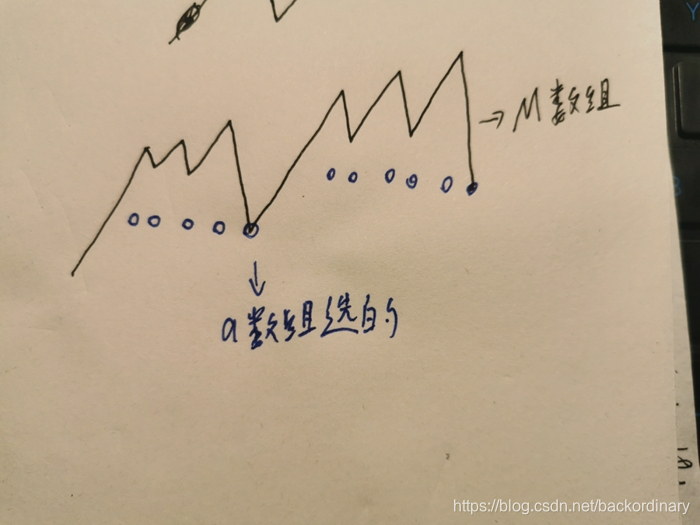 → M数组
a数组选的
https://blog.csdn.net/backordinary